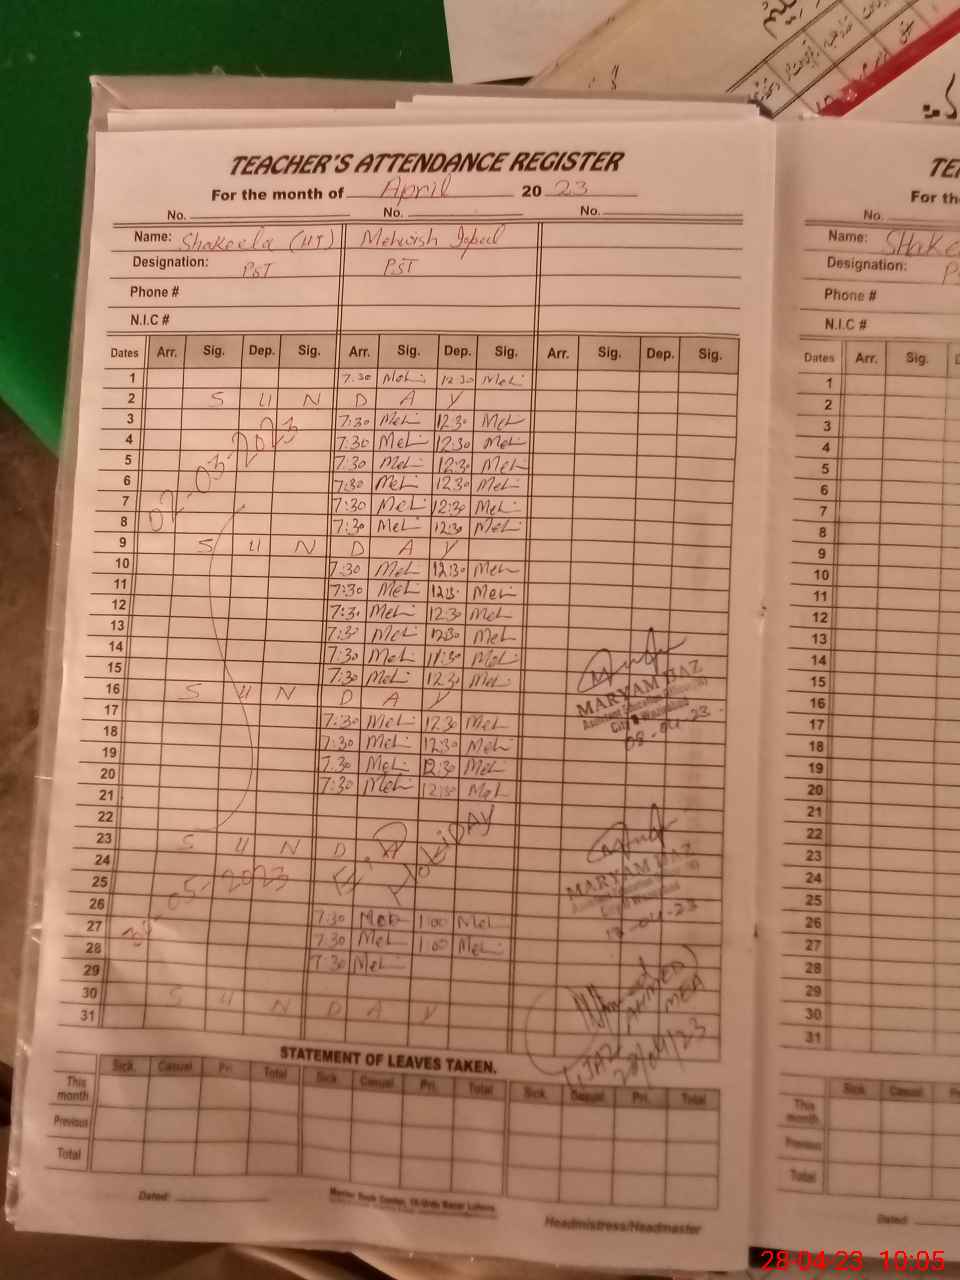 TEACHER'S ATTENDANCE REGISTER
For the month of April 20 23
No. No. No.
Name: Shakeela (HT) Mehwish Iqbal
Designation: PST PST
Phone #
N.I.C #
Dates Arr. Sig. Dep. Sig. Arr. Sig. Dep. Sig. Arr. Sig. Dep. Sig.
1 7:30 Meh 12:30 Meh
2 S U N D A Y
3 7:30 Meh 12:30 Meh
4 7:30 Meh 12:30 Meh
5 7:30 Meh 12:30 Meh
6 7:30 Meh 12:30 Meh
7 7:30 Meh 12:30 Meh
8 7:30 Meh 12:30 Meh
02-03-2023
9 S U N D A Y
10 7:30 Meh 12:30 Meh
11 7:30 Meh 12:30 Meh
12 7:30 Meh 12:30 Meh
13 7:30 Meh 12:30 Meh
14 7:30 Meh 11:30 Meh
15 7:30 Meh 12:30 Meh
16 S U N D A Y
17 7:30 Meh 12:30 Meh
18 7:30 Meh 12:30 Meh
19 7:30 Meh 12:30 Meh
20 7:30 Meh 12:30 Meh
21
22
23 S U N D A
24
25
26
-05-2023
27 7:30 Meh 1:00 Meh
28 7:30 Meh 1:00 Meh
29 7:30 Meh
30 S U N D A Y
31
MARYAM IJAZ
Assistant Education Officer
08-04-23
MARYAM IJAZ
18-04-23
AHMED
MEA
IJAZ
28/04/23
STATEMENT OF LEAVES TAKEN.
Sick. Casual Pri. Total Sick. Casual. Pri. Total Sick. Casual. Pri. Total
This month
Previous
Total
Dated:
Headmistress/Headmaster
For the
No.
Name: Shake
Designation: P
Phone #
N.I.C #
Dates Arr. Sig.
1
2
3
4
5
6
7
8
9
10
11
12
13
14
15
16
17
18
19
20
21
22
23
24
25
26
27
28
29
30
31
Sick. Casual.
This month
Previous
Total
Dated:
28-04-23 10:05